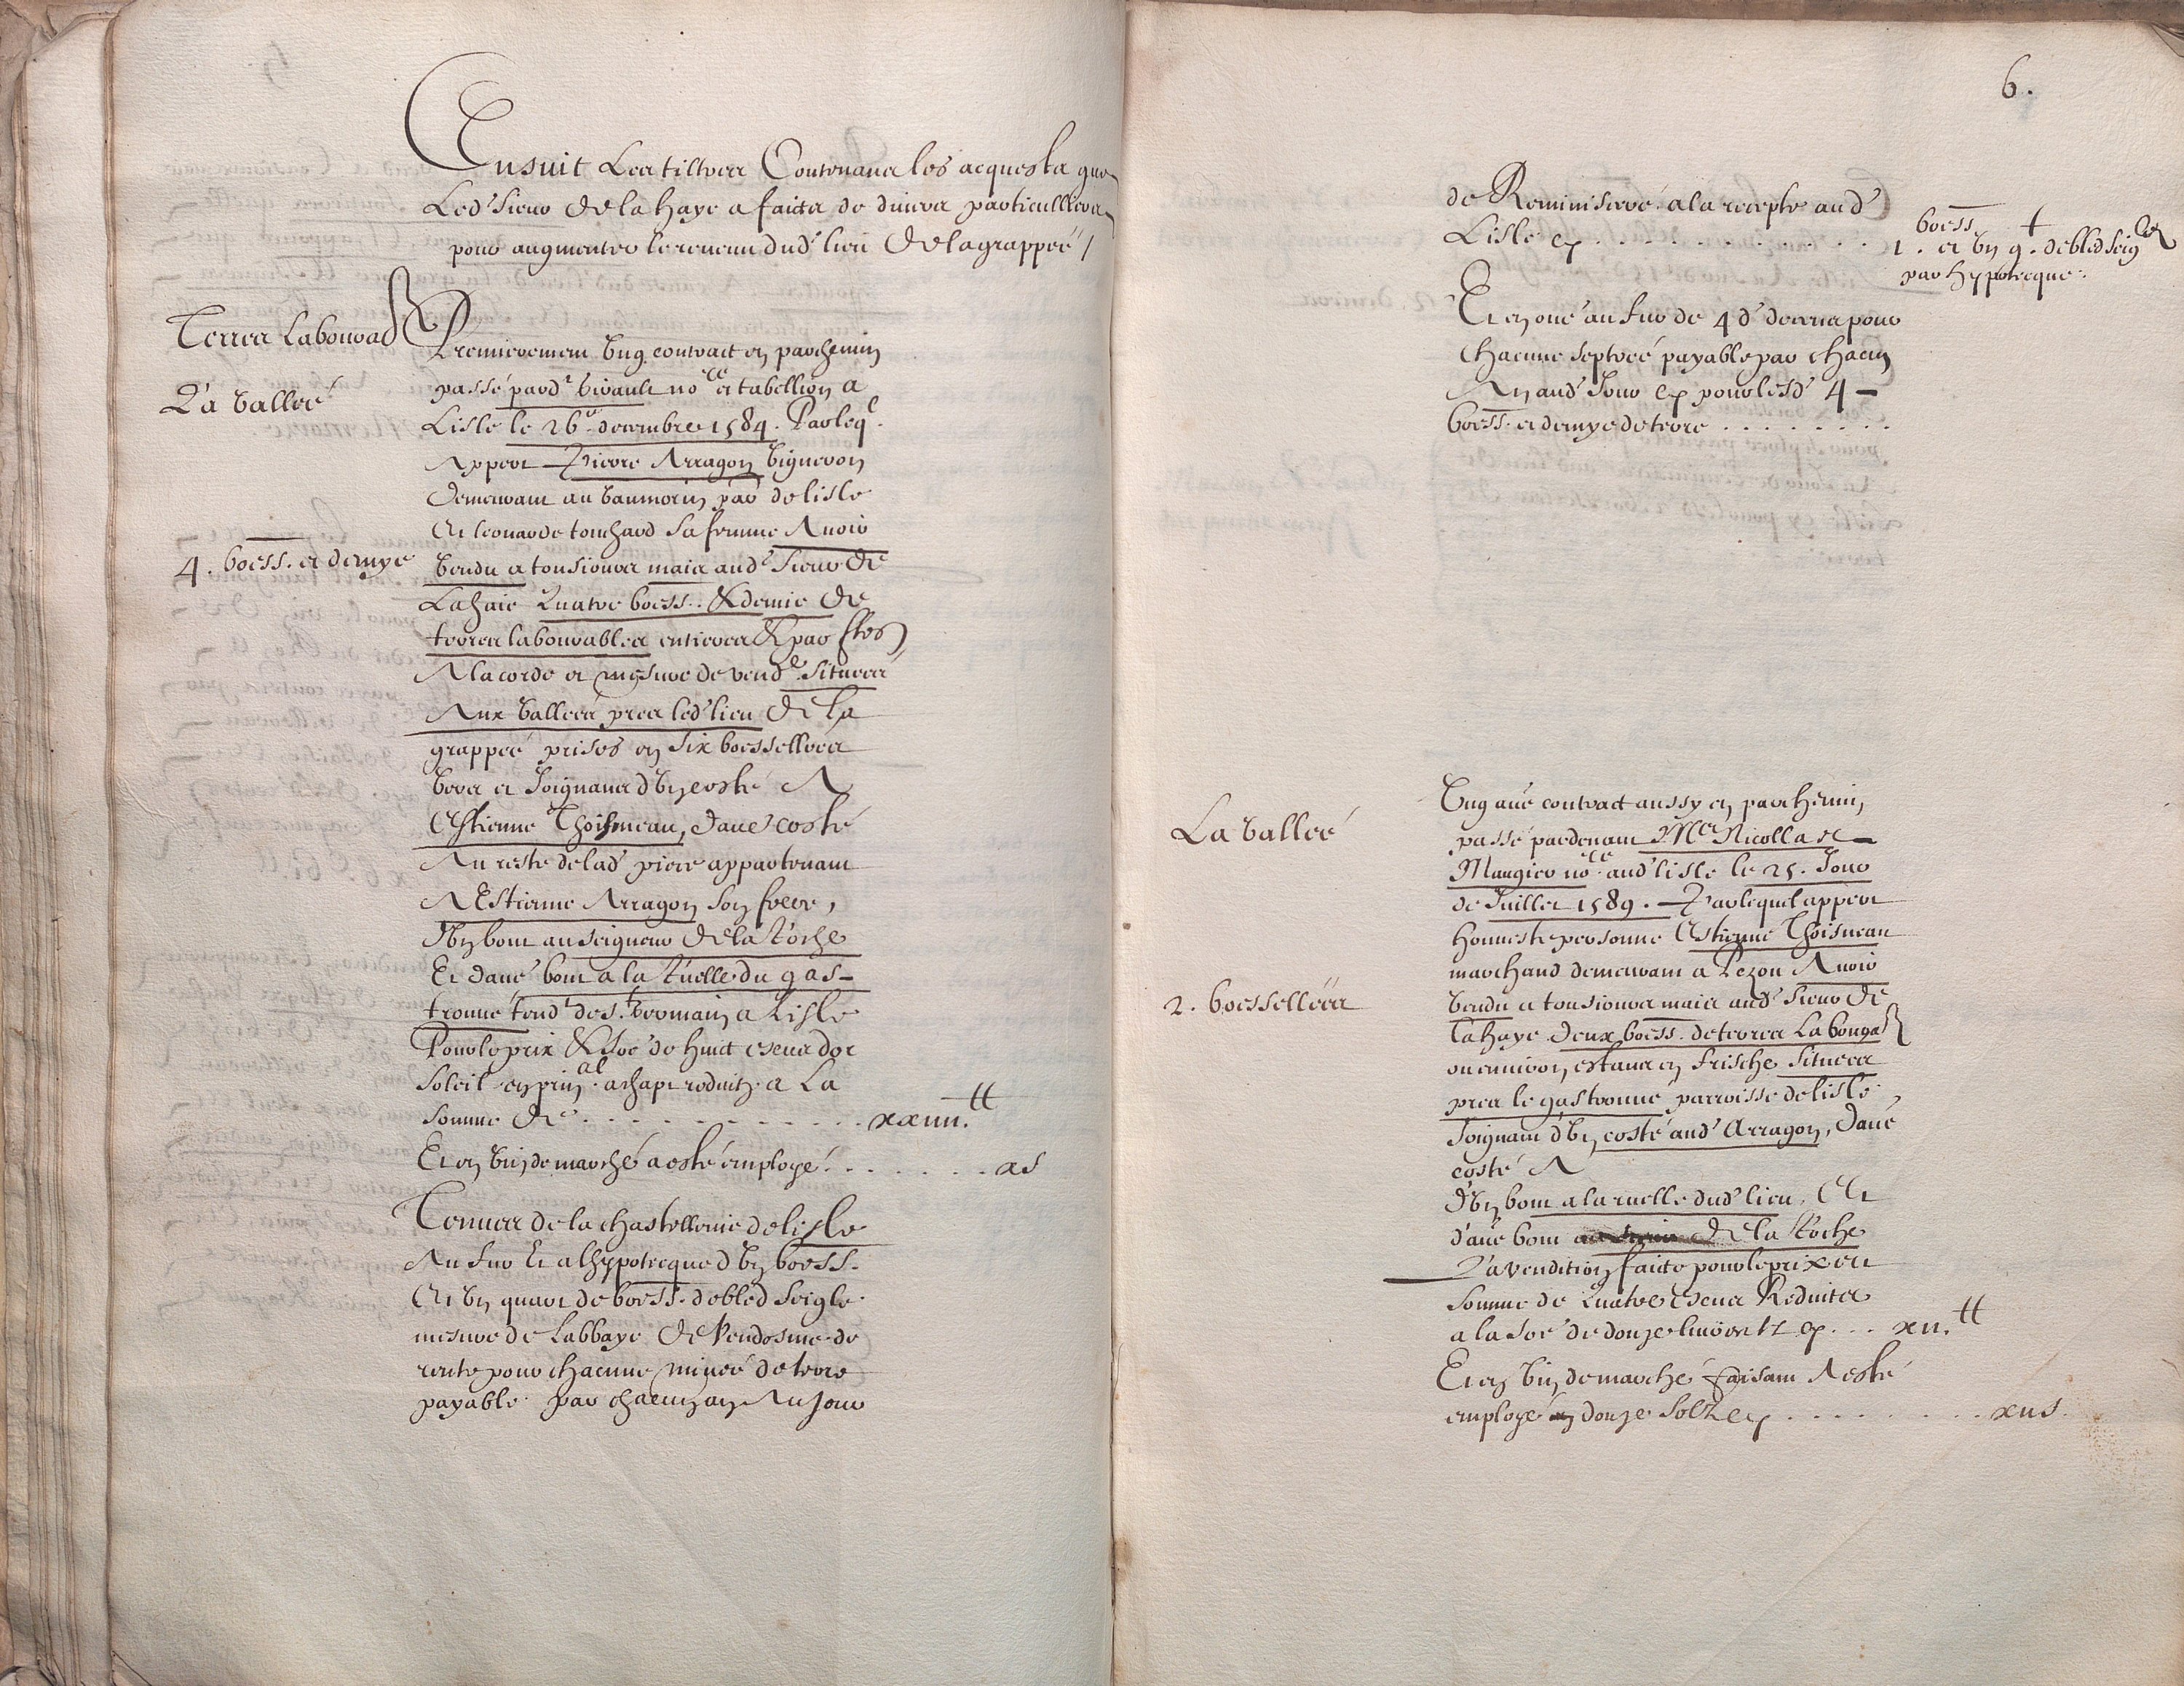 Ensuit Les tiltres Contenans les acquests que
Led' Sieur De la haye a faictz de divers particulliers
pour augmenter le revenu dud' lieu De la grappee /
Terres Labourab
La Vallee
Premierement Ung contract en parchemin
passé pard' Vivault no.re et tabellion a
Lisle le 26e decembre 1584. Par leql.
Appert Pierre Arragon Vigneron
Demeurant au paroi de lisle
Et leonarde touchard sa femme Avoir
4. boess. et demye
Vendu a tousiours mais aud' Sieur De
La haie Quatre boess. & demie De
terres labourables entieres & par
A la corde et mesure de vend.e Situees
Aux Vallees pres led' lieu De la
grappee prises en six boessellees
Joignans d'un costé A
Estienne Thoisneau, d'aue' costé
Au reste de lad' piece appartenant
A Estienne Arragon son frere,
D'un bout au seigneur De la Roche
Et d'aue' bout a la Ruelle du gas-
tronne tend.t de s.t Romain a Lisle
Pour le prix & so.e de huict escus d'or
Soleil en prin.al achapt reduitz a La
Somme De . . . . . . . . . . xxiiii.tt
Et en Vin de marché a esté employé . . . . . . as
Tenues de la chastellenie de lisle
Au fur Et a l'hypotecque d'un boess.
Et un quart de boess. de bled seigle
mesure de Labbaye De Vendosme de
rente pour chacune minee de terre
payable par chacun an Au Jour
6.
de Reminiscere a la recepte aud'
Lisle cy . . . . . . . . . .
boess. +
1. et un q. de bled seigle
par hypotecque.
Et en oue' au fur de 4 d' de cens pour
Chacune septree payable par chacun
An aud' Jour cy pour lesd' 4 -
boess. et demye de terre . . . . . . . .
La Vallee
Ung aue' contract aussy en parchemin
passé pardevant Me Nicollas
Maugier no.re aud' lisle le 25. Jour
de Juillet 1589. Par lequel appert
honneste personne Estienne Thoisneau
marchand demeurant a Pezou Avoir
2. boessellees
Vendu a tousiours mais aud' Sieur De
la haye deux boess. de terres Labourab
ou environ estans en frische Situees
pres le gastronne parroisse de lisle
Joignant d'un costé aud' Arragon, d'aue'
costé A
D'un bout a la ruelle dud' lieu, Et
d'aue' bout De la Roche
La vendition faicte pour le prix et
Somme de Quatre escus Reduitz
a la so.e de douze livres tz cy . . . xii.tt
Et en Vin de marché faisant A esté
employé douze solz cy . . . . . . . . . xii s.